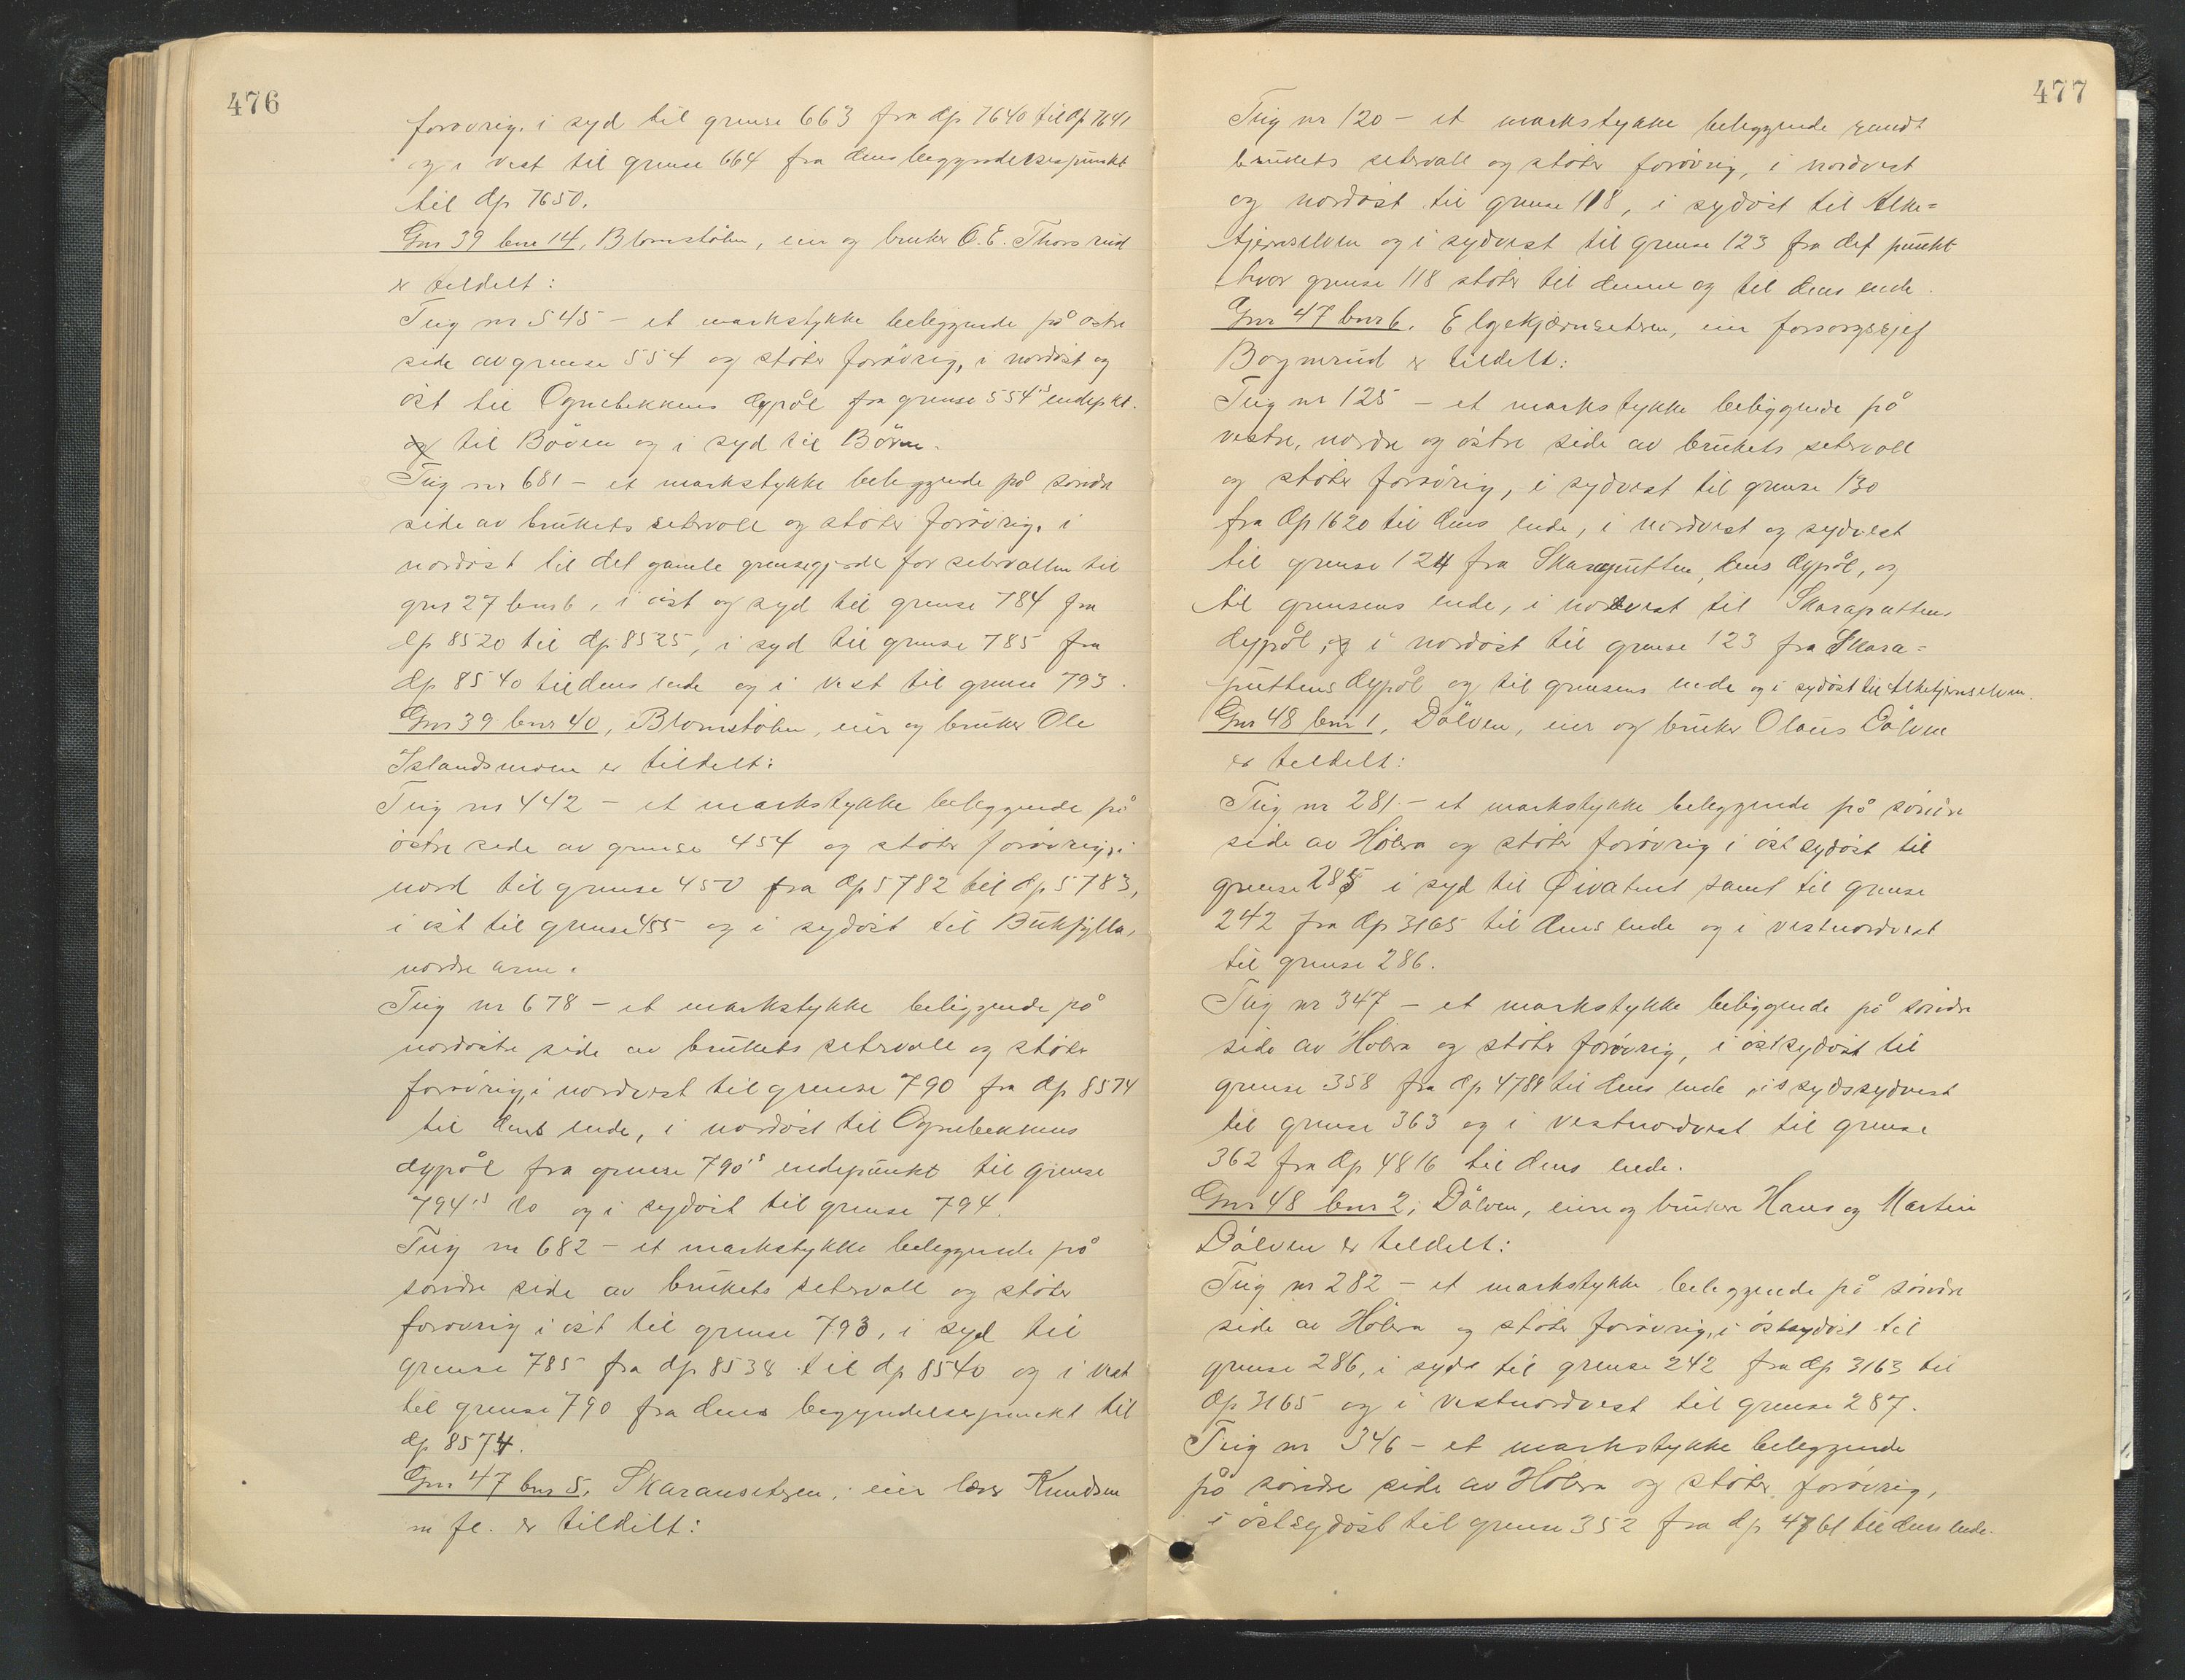 476
forøvrig, i syd til grense 663 fra dp 7640 til dp 7641
og i vest til grense 664 fra dens begyndelsespunkt
til dp 7650.
Gnr 39 bnr 14, Blomstølen, eier og bruker O. E. Thorsrud
er tildelt:
Teig nr 545 - et markstykke beliggende på østre
side av grense 554 og støter forøvrig, i nordøst og
øst til Ognebekkens dypål fra grense 554's endepkt.
og til Bøven og i syd til Bøven.
Teig nr 681 - et markstykke beliggende på søndre
side av brukets setervoll og støter forøvrig, i
nordøst til det gamle grensegjerde for setervollen til
gnr 27 bnr 6, i øst og syd til grense 784 fra
dp 8520 til dp 8525, i syd til grense 785 fra
dp 8540 til dens ende og i vest til grense 793.
Gnr 39 bnr 40, Blomstølen, eier og bruker Ole
Islandsmoen er tildelt:
Teig nr 442 - et markstykke beliggende på
østre side av grense 454 og støter forøvrig, i
nord til grense 450 fra dp 5782 til dp 5783,
i øst til grense 455 og i sydøst til Bukfylla,
nordre arm.
Teig nr 678 - et markstykke beliggende på
nordøstre side av brukets setervoll og støter
forøvrig, i nordvest til grense 790 fra dp 8574
til dens ende, i nordøst til Ognebekkens
dypål fra grense 790's endepunkt til grense
794's do og i sydøst til grense 794.
Teig nr 682 - et markstykke beliggende på
søndre side av brukets setervoll og støter
forøvrig i øst til grense 793, i syd til
grense 785 fra dp 8538 til dp 8540 og i vest
til grense 790 fra dens begyndelsespunkt til
dp 8574.
Gnr 47 bnr 5, Skaransetren, eier lærer Knudsen
m fl. er tildelt:
477
Teig nr 120 - et markstykke beliggende rundt
brukets setervoll og støter forøvrig, i nordvest
og nordøst til grense 118, i sydøst til Alke=
tjernselven og i sydvest til grense 123 fra det punkt
hvor grense 118 støter til denne og til dens ende.
Gnr 47 bnr 6. Elgekjernsetren, eier forsorgssjef
Bognerud er tildelt:
Teig nr 125 - et markstykke beliggende på
vestre, nordre og østre side av brukets setervoll
og støter forøvrig, i sydvest til grense 130
fra dp 1620 til dens ende, i nordvest og sydvest
til grense 124 fra Skaraputten, dens dypål, og
til grensens ende, i nordvest til Skaraputtens
dypål, og i nordøst til grense 123 fra Skara=
puttens dypål og til grensens ende og i sydøst til Alketjernselven.
Gnr 48 bnr 1, Dålven, eier og bruker Olaus Dålven
er tildelt:
Teig nr 281 - et markstykke beliggende på søndre
side av Hølera og støter forøvrig i øst sydøst til
grense 285 i syd til Øivatnet samt til grense
242 fra dp 3165 til dens ende og i vestnordvest
til grense 286.
Teig nr 347 - et markstykke beliggende på søndre
side av Hølera og støter forøvrig, i østsydøst til
grense 358 fra dp 4789 til dens ende, i sydsydvest
til grense 363 og i vestnordvest til grense
362 fra dp 4816 til dens ende.
Gnr 48 bnr 2, Dålven, eiere og brukere Hans og Martin
Dålven er tildelt:
Teig nr 282 - et markstykke beliggende på søndre
side av Hølera og støter forøvrig, i østsydøst til
grense 286, i syd til grense 242 fra dp 3163 til
dp 3165 og i vestnordvest til grense 287.
Teig nr 346 - et markstykke beliggende
på søndre side av Hølera og støter forøvrig,
i østsydøst til grense 352 fra dp 4761 til dens ende.